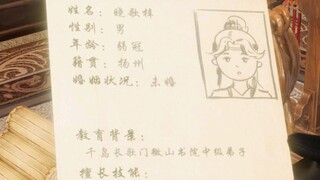 姓名：晓歌林
性别：男
年龄：弱冠
籍贯：扬州
婚姻状况：未婚
教育背景：
千岛长歌门微山书院中级弟子
擅长技能：